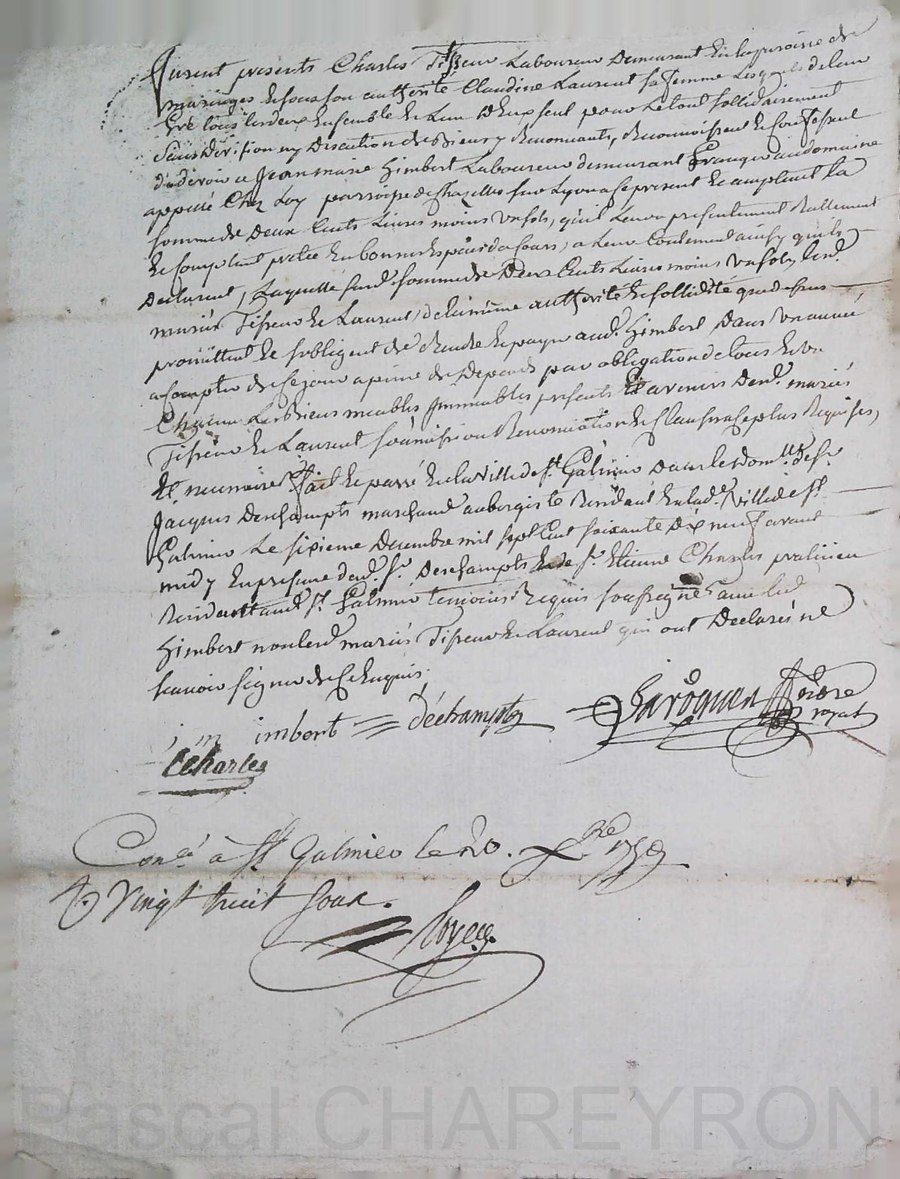 furent presents Charles Tisseur Laboureur Demeurant En la paroisse de
maringes Et sous son autherité Claudine Laurent sa femme Lesquels de leur
gré tous les deux Ensemble Et L'un D'Eux seul pour Le tout sollidairement
sans division ny Discution de Biens y Renonceants, Reconnoissent Et Confessent
devoir a Jean marie himbert Laboureur demeurant Granger au domaine
appellé Chez Loy parroisse de Chazelles sur Lyon a Ce present Et acceptant La
somme de Deux Cents Livres moins un sols, qu'il Leur a presentement Reellement
Et Comptant pretée En bonnes Espèces de Cours, a Leur Contentement ainsy qu'ils
Declarent, Laquelle susd. somme de Deux Cents Livres moins un sols, Lesd.
mariés Tisseur Et Laurent, de la même autherité Et sollidité que dessus
promettent Et s'obligent de Rendre Et payer aud. himbert Dans une année
a Compter de Ce jour a peine de Depends par obligation de tous Et un
Chacun Les Biens meubles Immeubles presents Et avenirs Desd. mariés
Tisseur Et Laurent soumission Renonciation Et Clauses a Ce plus Requises,
Et necessaires. fait Et passé En la ville de St. Galmier Dans le dom.lle de sr.
Jacques Deschampts marchand aubergiste Residant En lad. ville de St.
Galmier Le sixieme Decembre mil sept Cent soixante Dix neuf avant
midy En presence dud. sr. Deschampts Et de sr. Etienne Charles praticien
Residant aud. St. Galmier temoins Requis soussignés avec led.
himbert non lesd. mariés Tisseur Et Laurent qui ont Declarés ne
scavoir signer de Ce Enquis.
j m imbert déchampts
notre royal
E charles
Con.lé à St. Galmier le 20. Xbre 1779.
R. vingt huit sous.
Pascal CHAREYRON